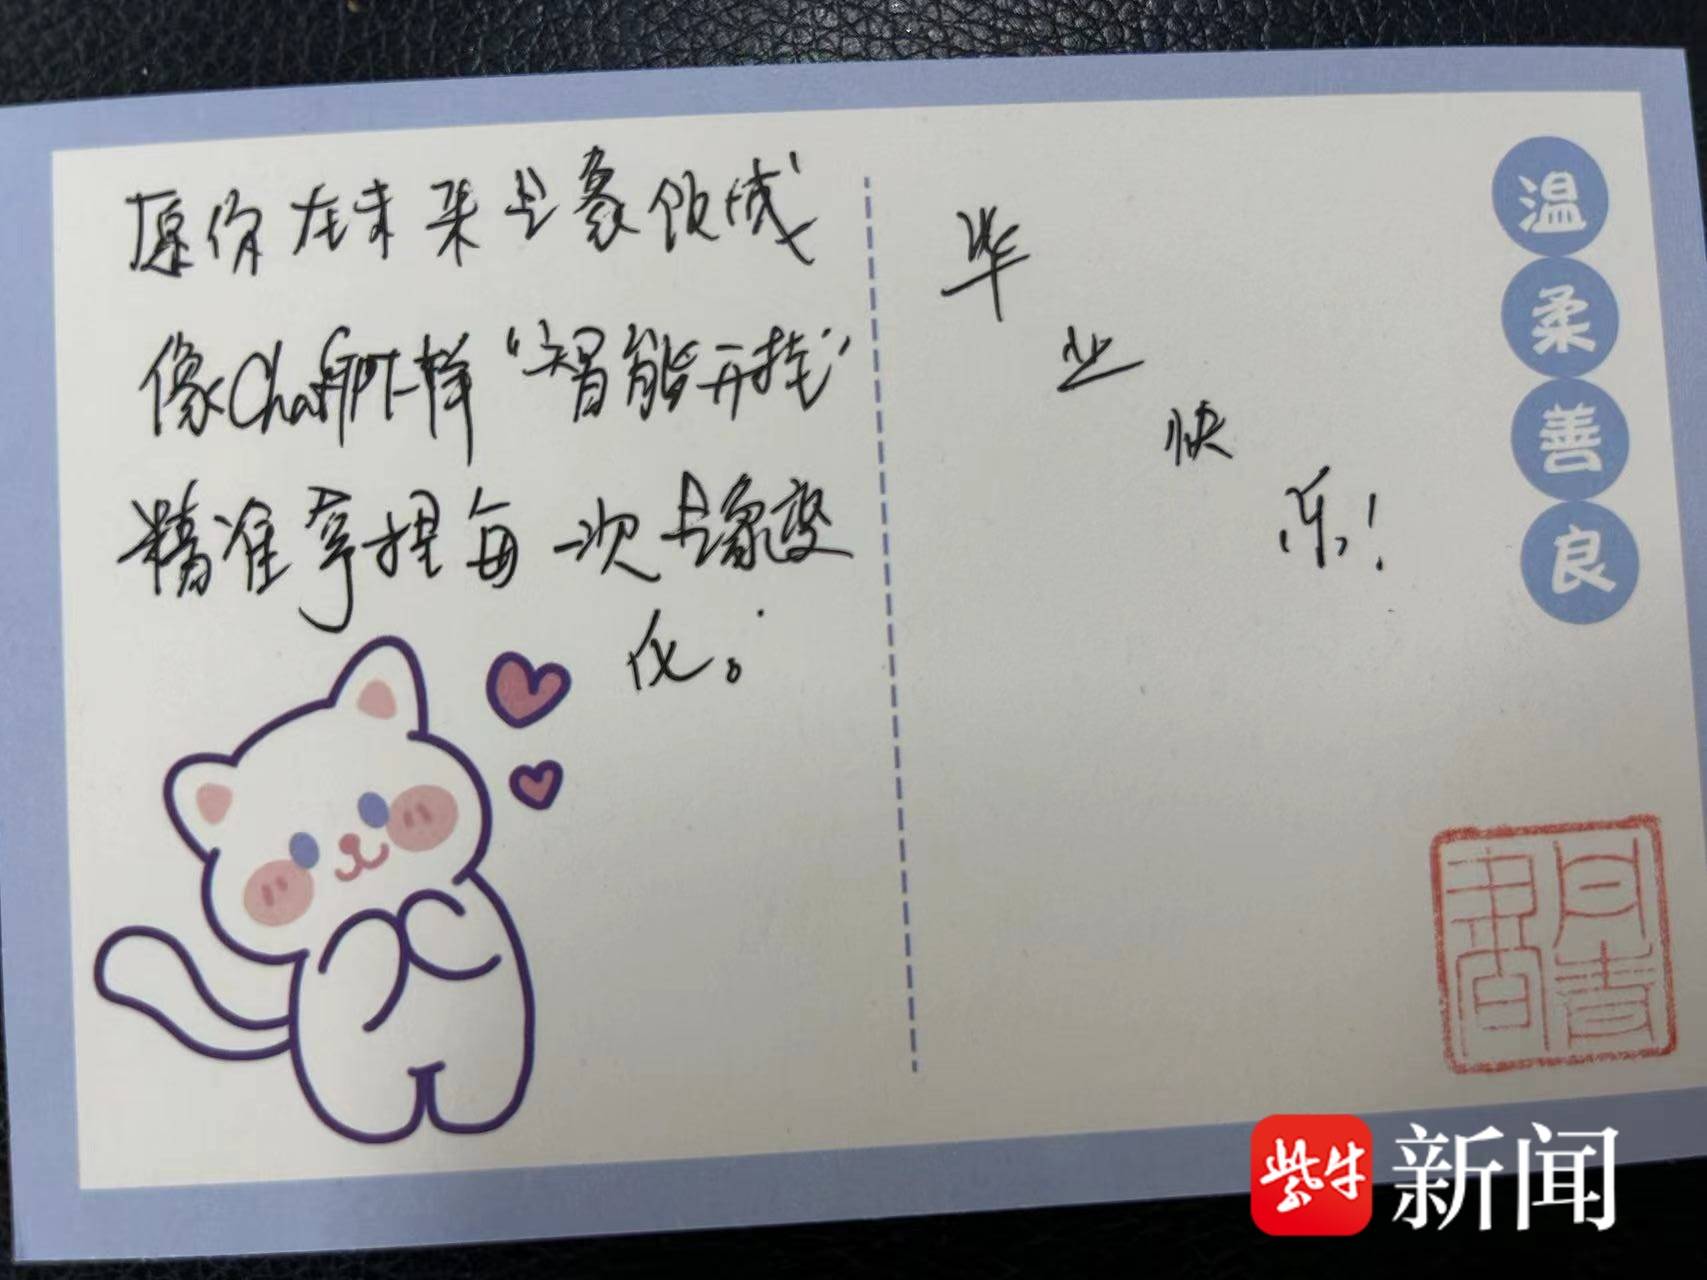 愿你在未来气象领域
像ChatGPT一样“智能开挂”
精准拿捏每一次气象变
化。
毕
业
快
乐！
温
柔
善
良
紫牛 新闻